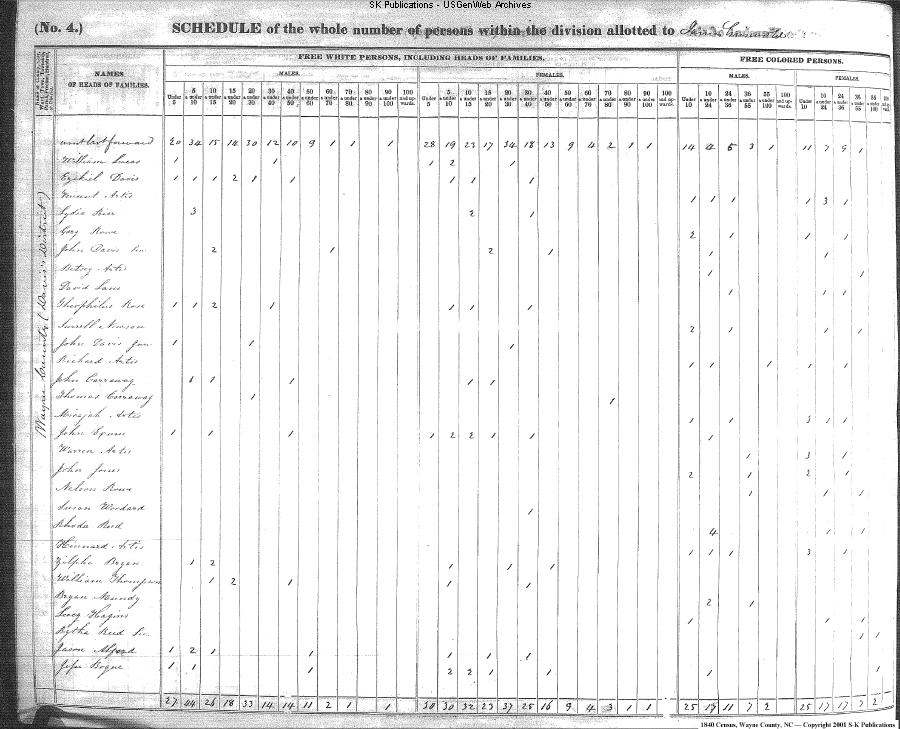 SK Publications - USGenWeb Archives
(No. 4.) SCHEDULE of the whole number of persons within the division allotted to
NAMES OF HEADS OF FAMILIES.
FREE WHITE PERSONS, INCLUDING HEADS OF FAMILIES.
FREE COLORED PERSONS.
MALES. FEMALES. MALES. FEMALES.
Under 5 5 & under 10 10 & under 15 15 & under 20 20 & under 30 30 & under 40 40 & under 50 50 & under 60 60 & under 70 70 & under 80 80 & under 90 90 & under 100 100 and upwards.
Under 5 5 & under 10 10 & under 15 15 & under 20 20 & under 30 30 & under 40 40 & under 50 50 & under 60 60 & under 70 70 & under 80 80 & under 90 90 & under 100 100 and upwards.
Under 10 10 & under 24 24 & under 36 36 & under 55 55 & under 100 100 and upwards.
Under 10 10 & under 24 24 & under 36 36 & under 55 55 & under 100
Wayne County (Davis's District)
forward 20 34 15 14 30 12 10 9 1 1 1 28 19 23 17 34 18 13 9 4 2 1 1 14 4 3 1 11 7 9 1
William Lucas 1 1 1 2 1
Ezekiel Davis 1 1 1 2 1 1 1 1 1
Artis 1 1 1 1 3 1
Lydia 3 2 1
Rowe 2 1 1 1
John Davis Sen 2 1 2 1 1 1
Betsey Artis 1 1
David Lane 1 1 1
Theophilus Rose 1 1 2 1 1 1 1
Newsom 2 1 1 1
John Davis Jun 1 1 1
Richard Artis 1 1 1 1 1
John Carraway 6 1 1 1 1
Thomas Carraway 1 1
Micajah Artis 1 1 3 1 1
John 1 1 1 1 2 2 1 1 1
Warren Artis 1 3 1
John Jones 2 1 2 1
Nelson Rowe 1 1 1
Susan Woodard 1
Rhoda Reed 4 1 1
Artis 1 1 1 3 1
Zilpha Bryan 1 2 1 1 1
William Thompson 1 2 1 1 1
Bryan Mundy 2 1
Hagins 1 1 1
Reed Sen. 1 1
Jason Alford 1 2 1 1 1 1 1
Bogue 1 1 1 2 2 1 1 1 1
27 44 26 18 33 14 14 11 2 1 1 30 30 32 23 37 25 16 9 4 3 1 1 25 19 11 7 2 25 17 17 2
1840 Census, Wayne County, NC — Copyright 2001 S-K Publications